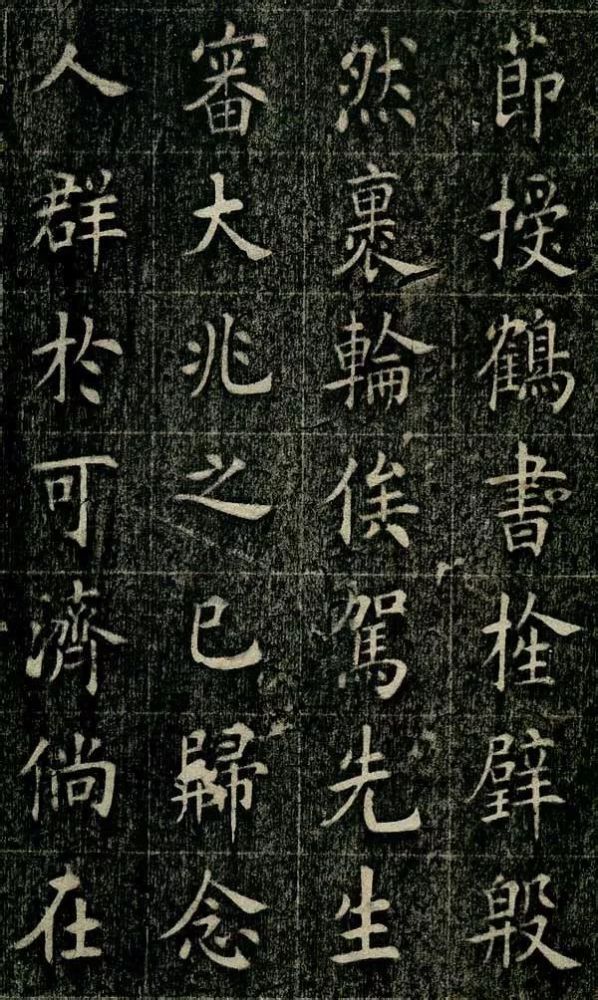 節授鶴書栓璧殷
然裹輪俟駕先生
審大兆之已歸念
人群於可濟倘在